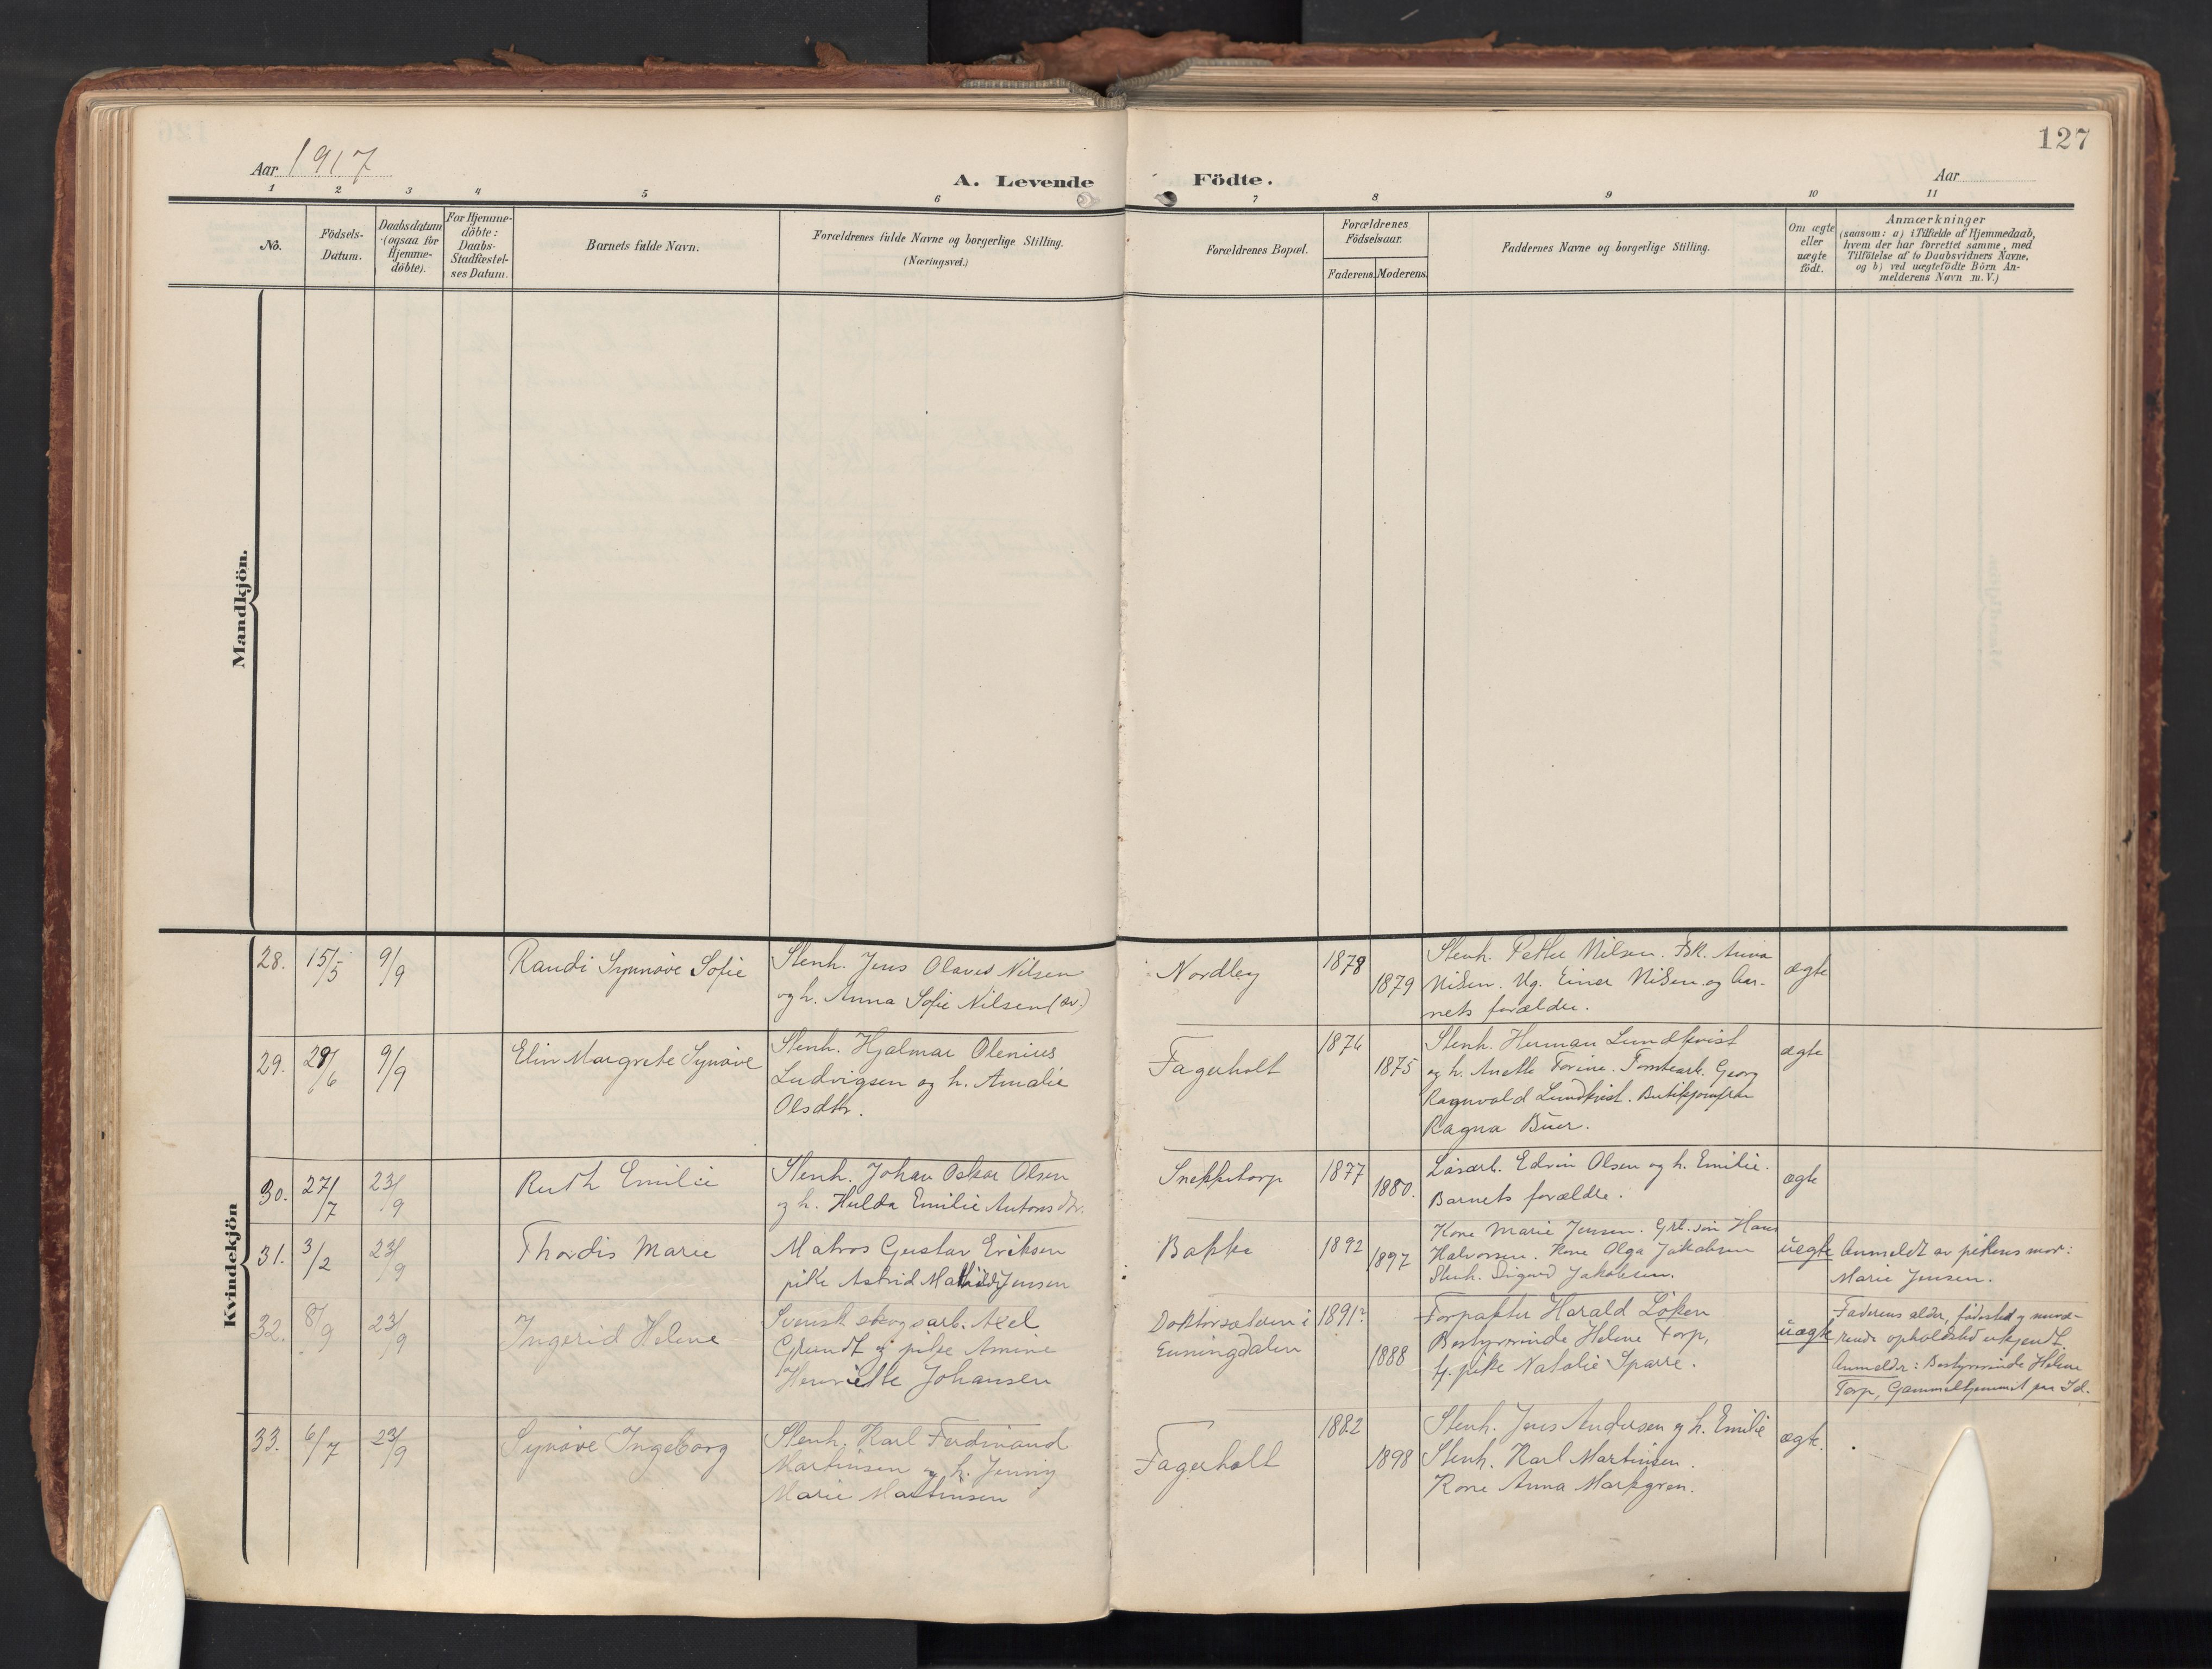 127
Aar 1917
A. Levende Födte.
Aar
1 2 3 4 5 6 7 8 9 10 11
No.
Födsels-
Datum.
Daabsdatum
(ogsaa for
Hjemme-
döbte).
For Hjemme-
döbte:
Daabs-
Stadfæstel-
ses Datum.
Barnets fulde Navn.
Forældrenes fulde Navne og borgerlige Stilling.
(Næringsvei.)
Forældrenes Bopæl.
Forældrenes
Födselsaar.
Faderens. Moderens.
Faddernes Navne og borgerlige Stilling.
Om ægte
eller
uægte
födt.
Anmærkninger
(saasom: a) i Tilfælde af Hjemmedaab,
hvem der har forrettet samme, med
Tilföielse af to Daabsvidners Navne,
og b) ved uægtefödte Börn An-
melderens Navn m.V.)
Mandkjön.
Kvindekjön
28. 15/5 9/9
Randi Synnöve Sofie
Stenh. Jens Olaves Nilsen
og h. Anna Sofie Nilsen (sv.)
Nordley
1878
1879
Stenh. Petter Nilsen. Fbk. Anna
Nilsen. Ug. Einar Nilsen og bar-
nets forældre.
ægte
29. 29/6 9/9
Elin Margrete Synöve
Stenh. Hjalmar Olenius
Ludvigsen og h. Amalie
Olsdtr.
Fagerholt
1876
1875
Stenh. Herman Lundkvist
og h. Anette Torine. Tomtearb. Georg
Ragnvald Lundkvist. Butikjomfru
Ragna Buer.
ægte
30. 27/7 23/9
Ruth Emilie
Stenh. Johan Oskar Olsen
og h. Hulda Emilie Antonsdtr.
Snekketorp
1877
1880.
Lösarb. Edvin Olsen og h. Emilie.
Barnets forældre.
ægte
31. 3/2 23/9
Thordis Marie
Matros Gustav Eriksen
pike Astrid Mathilde Jensen
Bakke
1892
1897
Kone Marie Jensen. Grb. sön Hans
Halvorsen. Kone Olga Jakobsen
Stenh. Sigurd Jakobsen.
uegte
Anmeldt av pikens mor:
Marie Jensen.
32. 8/9 23/9
Ingerid Helene
Svensk skogsarb. Axel
Grundt og pike Amine
Henriette Johansen
Doktorsætern i
Enningdalen
1891?
1888
Forpakter Harald Löken
Bestyrerinde Helene Torp,
tj. pike Natalie Sparre.
uægte
Faderens alder, födested og nuvæ-
rende opholdsted ukjendt.
Anmelder: Bestyrerinde Helene
Torp, Gammeltjernmit pr. Id.
33. 6/7 23/9
Synöve Ingeborg
Stenh. Karl Ferdinand
Martinsen og h. Jenny
Marie Martinsen
Fagerholt
1882
1898
Stenh. Jens Andersen og h. Emilie
Stenh. Karl Martinsen.
Kone Anna Markgren.
ægte.